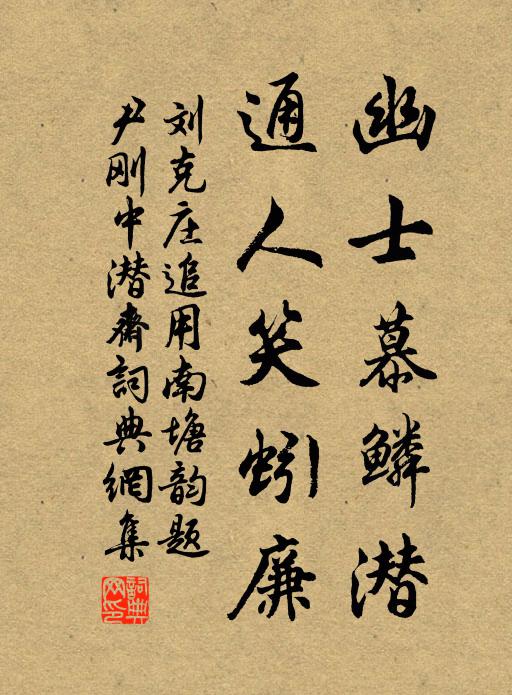 幽士慕鳞潜
通人笑蚓廉
刘克庄追用南塘韵题
尹刚中潜斋詞典網集
詞典網印